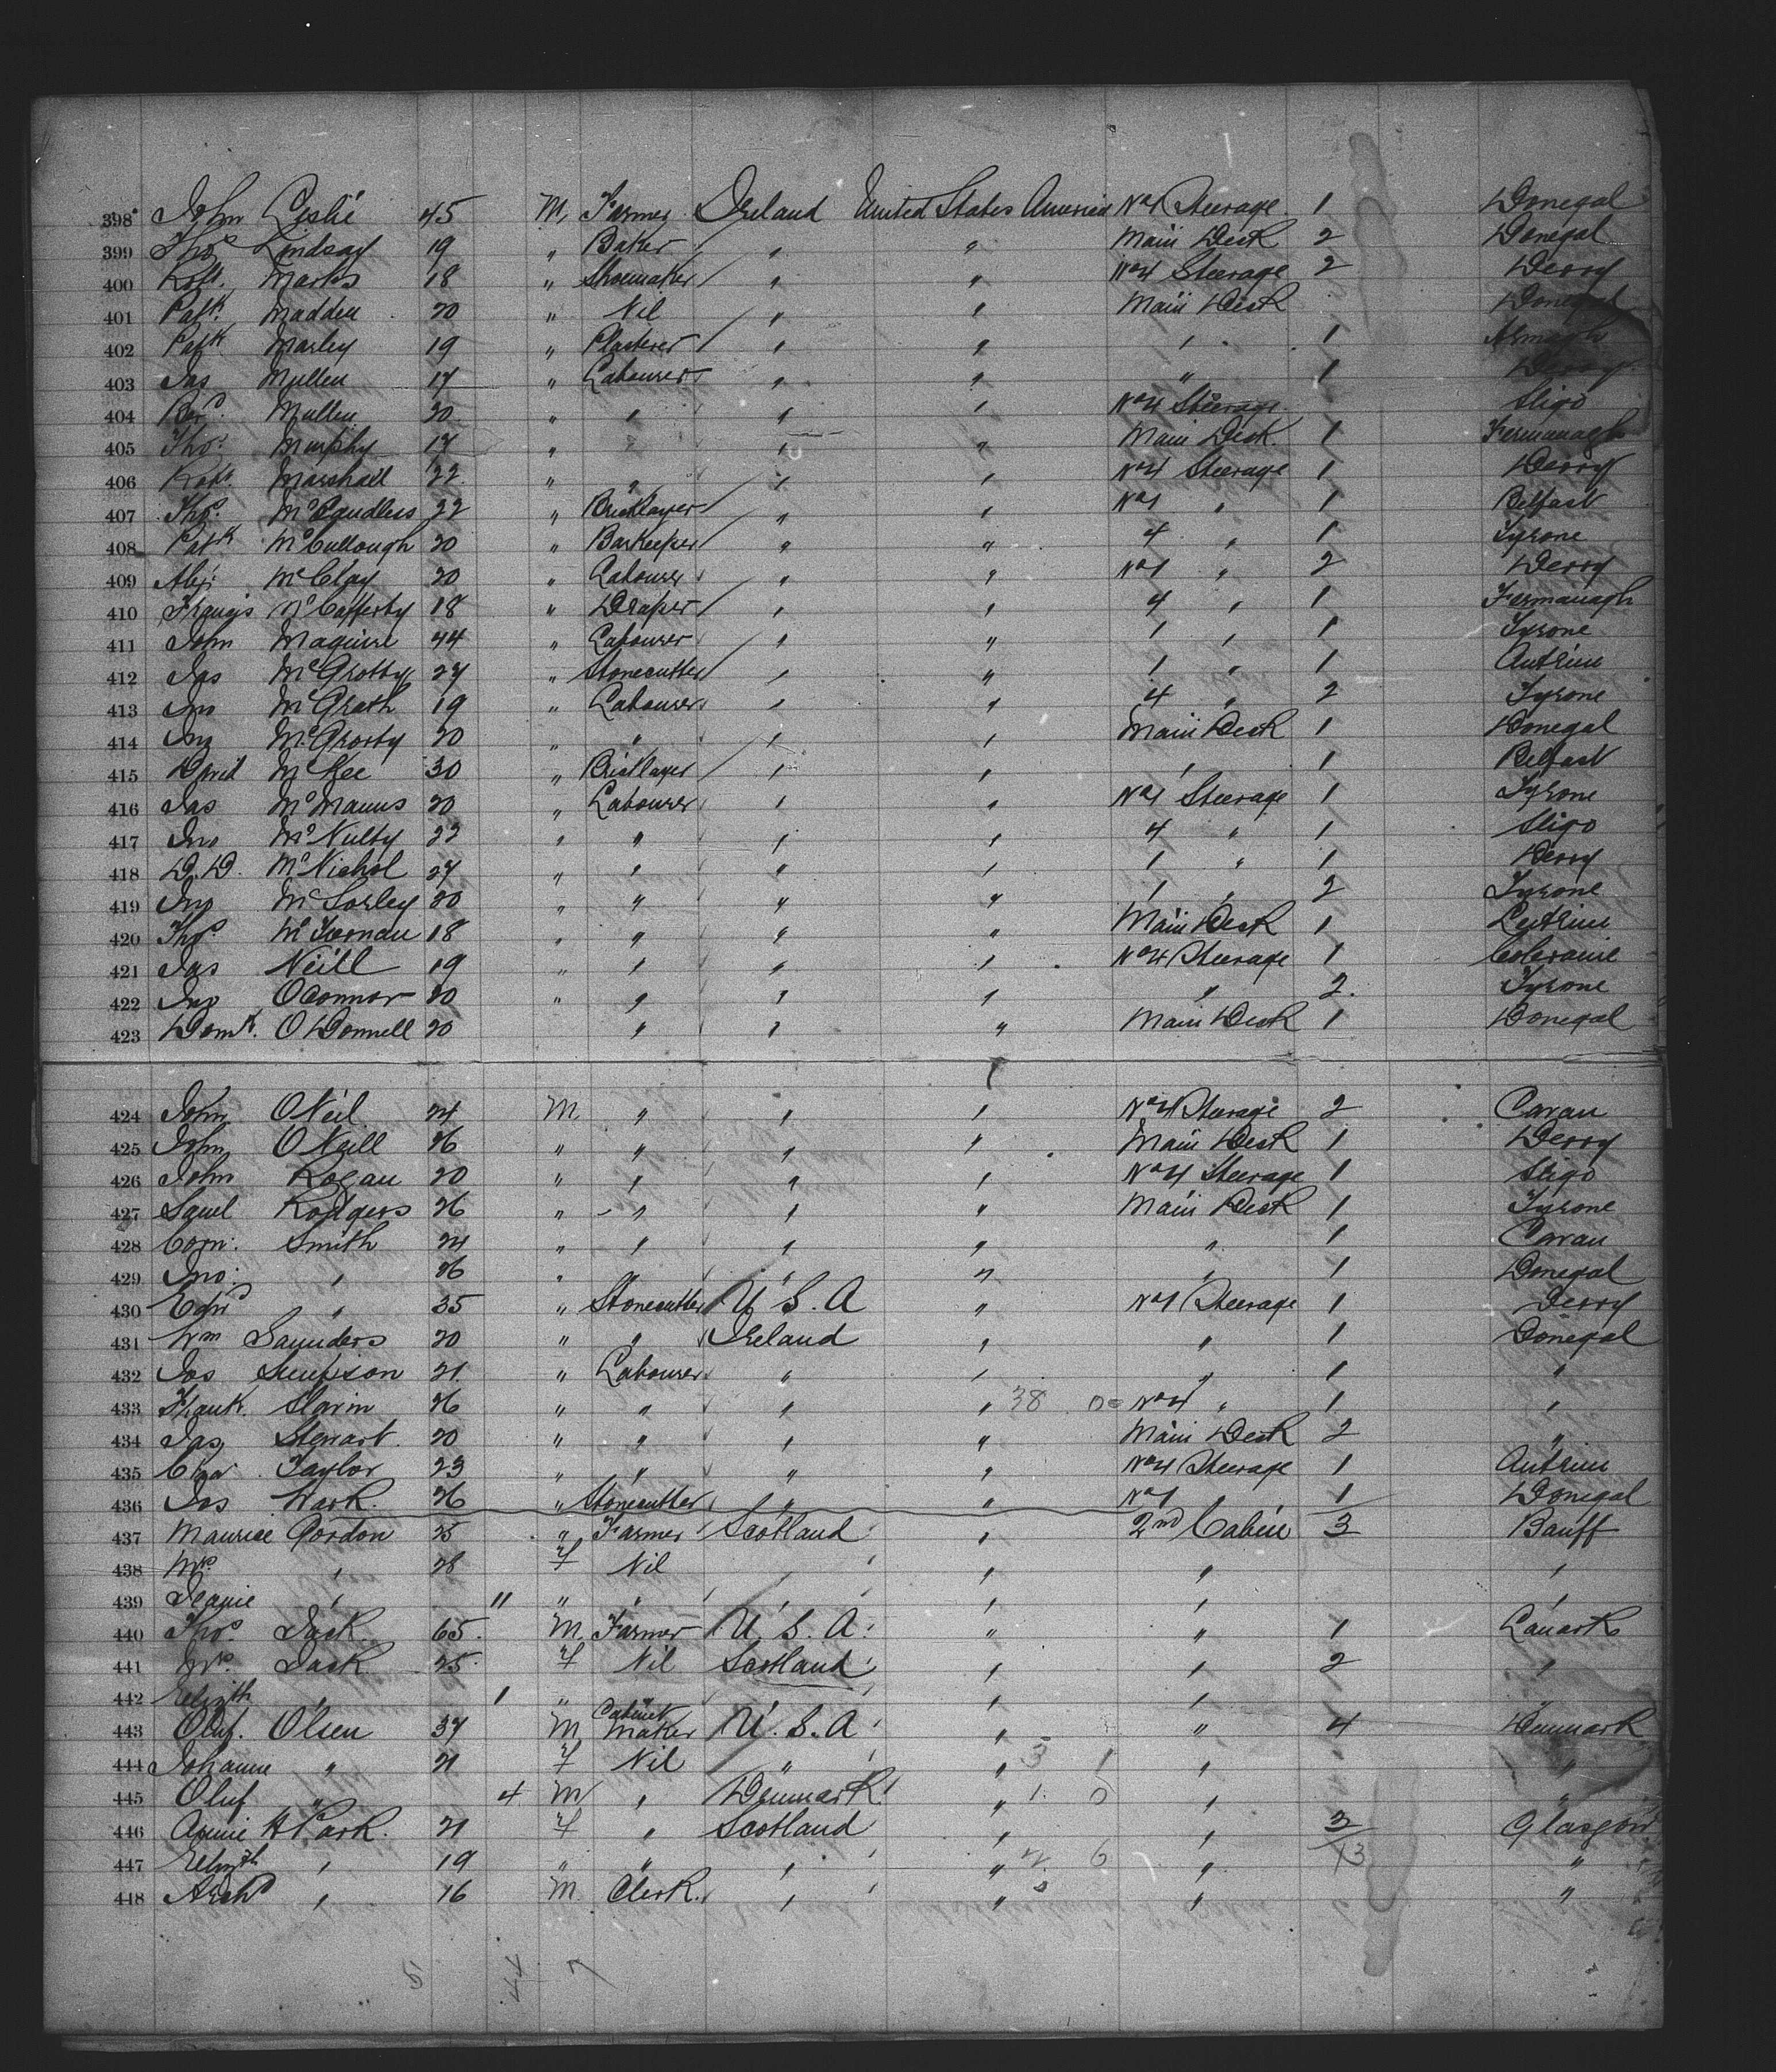 398 John Leslie 45 M Farmer Ireland United States America No 1 Steerage 1 Donegal
399 Thos Lindsay 19 " Baker " " Main Deck 2 Donegal
400 Robt. Marks 18 " Shoemaker " " No 4 Steerage 2 Derry
401 Patk. Madden 20 " Nil " " Main Deck Donegal
402 Patk Marley 19 " Plasterer " " " 1 Armagh
403 Jas Mullen 17 " Labourer " " " 1 Derry
404 Mullen 20 " " " " No 4 Steerage Sligo
405 Thos. Murphy 17 " " " " Main Deck 1 Fermanagh
406 Robt. Marshall 22 " " " " No 4 Steerage 1 Derry
407 Thos. McCandless 22 " Bricklayer " " No 1 " 1 Belfast
408 Patk McCullough 20 " Barkeeper " " 4 " 1 Tyrone
409 Alex. McClay 20 " Labourer " " No 1 " 2 Derry
410 Francis McCafferty 18 " Draper " " 4 " 1 Fermanagh
411 John Maguire 44 " Labourer " " 1 " 1 Tyrone
412 Jas McGrotty 27 " Stonecutter " " 1 " 1 Antrim
413 Jno McGrath 19 " Labourer " " 4 " 2 Tyrone
414 Jno McGrorty 20 " " " " Main Deck 1 Donegal
415 David McKee 30 " Bricklayer " " " 1 Belfast
416 Jas McManus 20 " Labourer " " No 1 Steerage 1 Tyrone
417 Jno McNulty 22 " " " " 4 " 1 Sligo
418 D.D. McNichol 27 " " " " 1 " 1 Derry
419 Jno McSorley 20 " " " " " " 2 Tyrone
420 Thos. McTernan 18 " " " " Main Deck 1 Leitrim
421 Jas Neill 19 " " " " No 4 Steerage 1 Coleraine
422 Jno OConnor 20 " " " " " 2 Tyrone
423 Domk. O'Donnell 20 " " " Main Deck 1 Donegal
424 John ONeil 24 M " " " No 4 Steerage 2 Cavan
425 John ONeill 26 " " " " Main Deck 1 Derry
426 John Rogan 20 " " " " No 4 Steerage 1 Sligo
427 Saml Rodgers 26 " " " " Main Deck 1 Tyrone
428 Corn. Smith 24 " " " " " 1 Cavan
429 Jno. " 26 " " " " " 1 Donegal
430 Edwd " 35 " Stonecutter U.S.A " No 1 Steerage 1 Derry
431 Wm Saunders 20 " " Ireland " " 1 Donegal
432 Jas Simpson 21 " Labourer " " " 1 "
433 Frank. Slavin 26 " " " " 38 No 4 " 1 "
434 Jas Stewart 20 " " " " Main Deck 2 "
435 Chas Taylor 23 " " " " No 4 Steerage 1 Antrim
436 Jas Wark. 26 " Stonecutter " " No 1 " 1 Donegal
437 Maurice Gordon 25 " Farmer Scotland " 2nd Cabin 3 Banff
438 Mrs " 28 F Nil " " " "
439 Jeanie " 11 " " " " " "
440 Thos. Jack 65 M Farmer U.S.A. " " 1 Lanark
441 Mrs. Jack 25 F Nil Scotland " " 2 "
442 Elizth " 1 " " " " "
443 Oluf. Olsen 37 M Cabinet Maker U.S.A " " 4 Denmark
444 Johanne " 21 F Nil " " 3 1 " "
445 Oluf " 4 M " Denmark " 1. 0 " "
446 Annie H Park. 21 F " Scotland " " 3 Glasgow
447 Elizth " 19 " " " " 2. 6 " 13 "
448 Archd " 16 M Clerk. " " " "